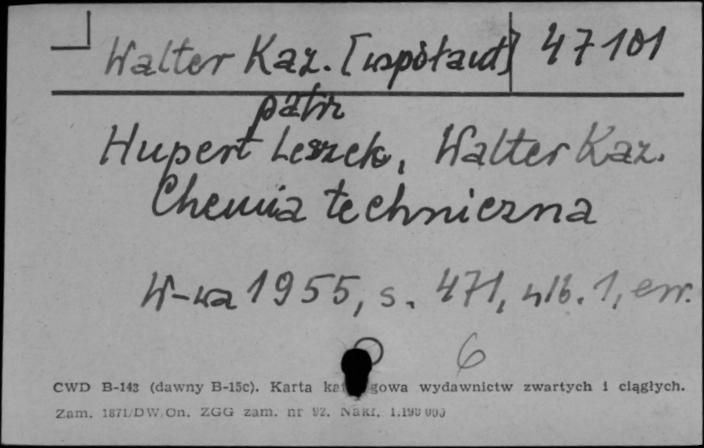 Walter Kaz. [współaut] 47101
patrz
Hupert Leszek, Walter Kaz.
Chemia techniczna
W-wa 1955, s. 471, nlb. 1, err.
6
CWD B-143 (dawny B-15c). Karta katalogowa wydawnictw zwartych i ciągłych.
Zam. 1871/DW/On. ZGG zam. nr 92. Nakł. 1.190 000